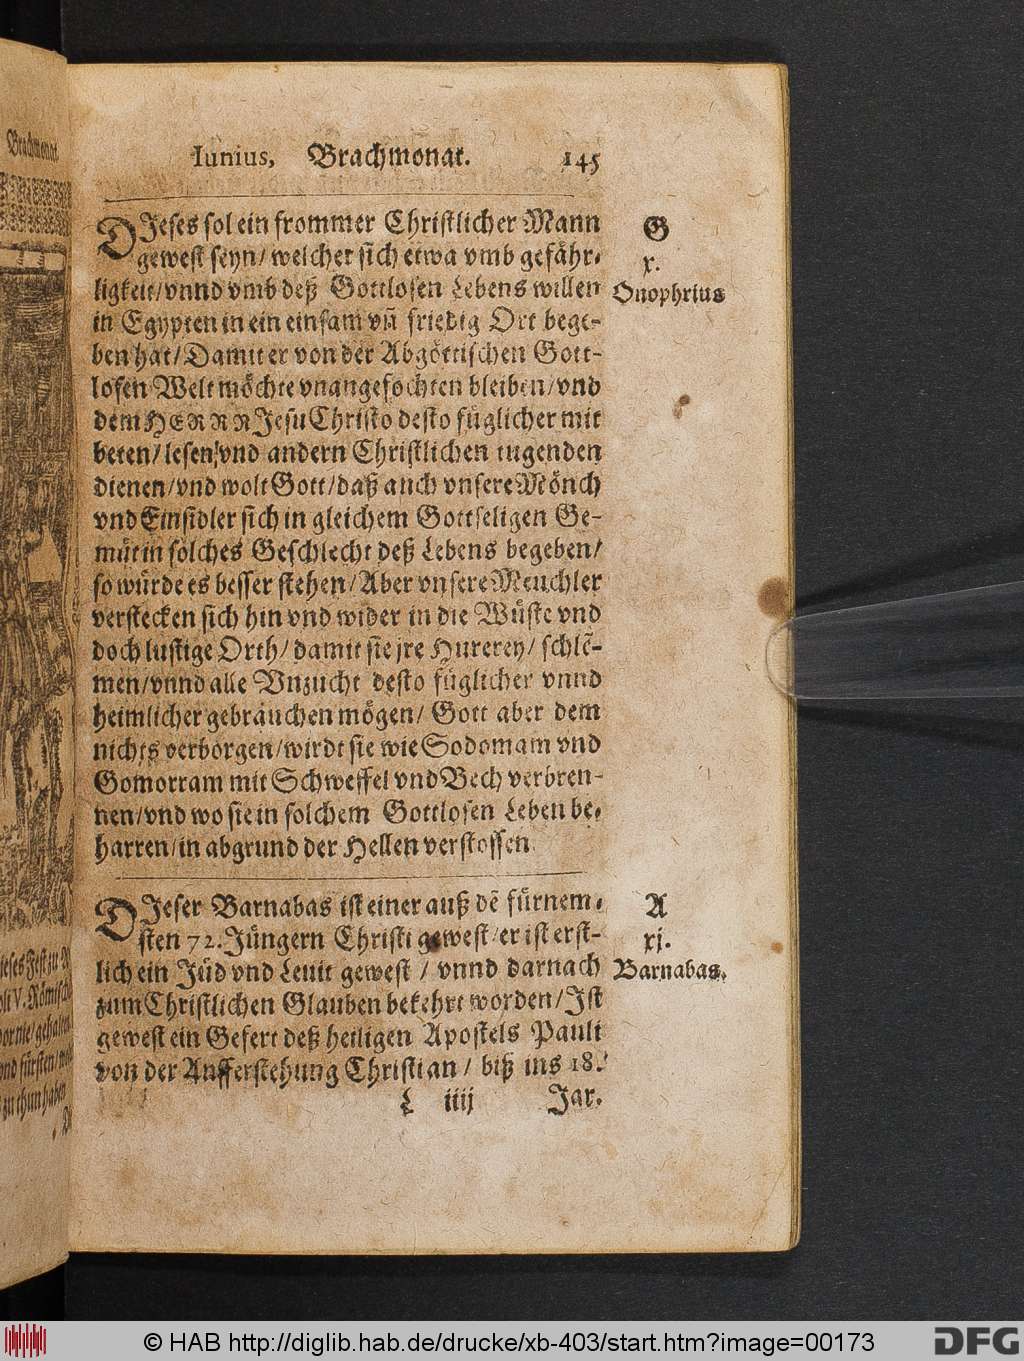 Iunius, Brachmonat. 145
DJeses sol ein frommer Christlicher Mann
gewest seyn/ welcher sich etwa vmb gefähr-
ligkeit/vnnd vmb deß Gottlosen Lebens willen
in Egypten in ein einsam vñ friedig Ort bege-
ben hat/Damit er von der Abgöttischen Gott-
losen Welt möchte vnangefochten bleiben/vnd
dem HERRN Jesu Christo desto füglicher mit
beten/lesen/vnd andern Christlichen tugenden
dienen/vnd wolt Gott/daß auch vnsere Mönch
vnd Einsidler sich in gleichem Gottseligen Ge-
müt in solches Geschlecht deß Lebens begeben/
so würde es besser stehen/Aber vnsere Meuchler
verstecken sich hin vnd wider in die Wüste vnd
doch lustige Orth/ damit sie jre Hurerey/ schlē-
men/vnnd alle Vnzucht desto füglicher vnnd
heimlicher gebrauchen mögen/ Gott aber dem
nichts verborgen/wirdt sie wie Sodomam vnd
Gomorram mit Schweffel vnd Bech verbren-
nen/vnd wo sie in solchem Gottlosen Leben be-
harren/in abgrund der Hellen verstossen
G
x.
Onophrius
DJeser Barnabas ist einer auß dē fürnem-
sten 72. Jüngern Christi gewest/er ist erst-
lich ein Jüd vnd Leuit gewest / vnnd darnach
zum Christlichen Glauben bekehrt worden/Jst
gewest ein Gefert deß heiligen Apostels Pauli
von der Aufferstehung Christi an / biß ins 18.
L iiij Jar.
A
xj.
Barnabas.
Brachmonat.
© HAB http://diglib.hab.de/drucke/xb-403/start.htm?image=00173
DFG